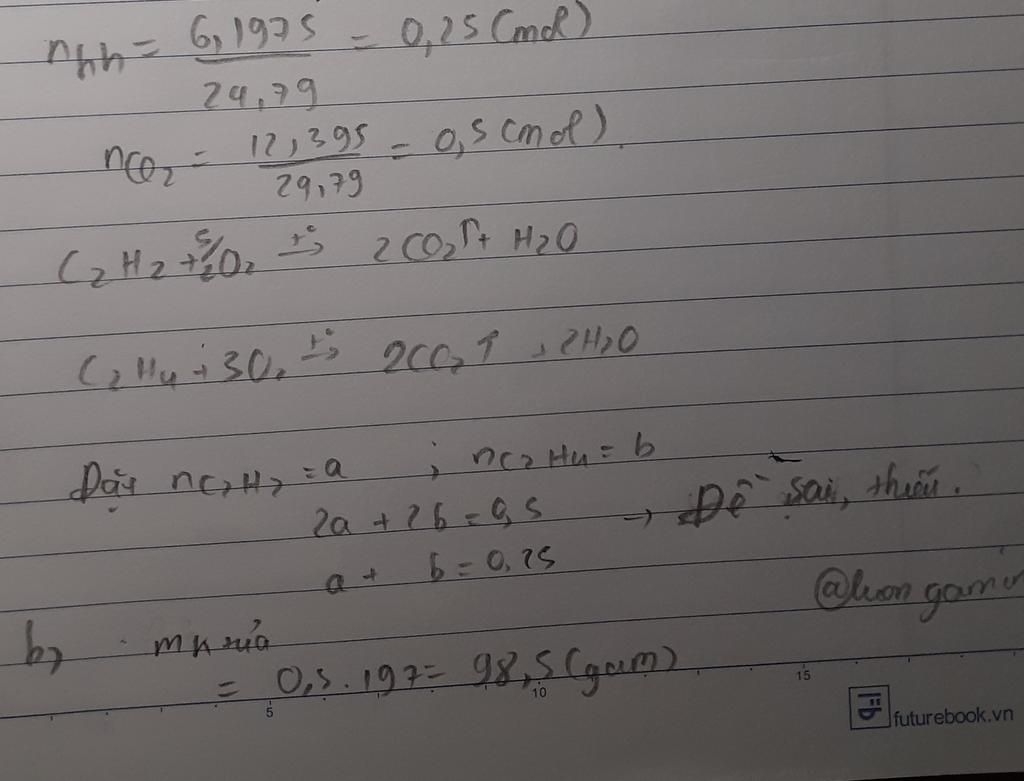 nhh = 6,1975 / 24,79 = 0,25 (mol)
nCO2 = 12,395 / 24,79 = 0,5 (mol).
C2H2 + 5/2O2 t°→ 2CO2↑ + H2O
C2H4 + 3O2 t°→ 2CO2↑ + 2H2O
Đặt nC2H2 = a ; nC2H4 = b
2a + 2b = 0,5 → Đề sai, thiếu.
a + b = 0,25
@
b,
= 0,5 . 197 = 98,5 (gam)
5 10 15
futurebook.vn